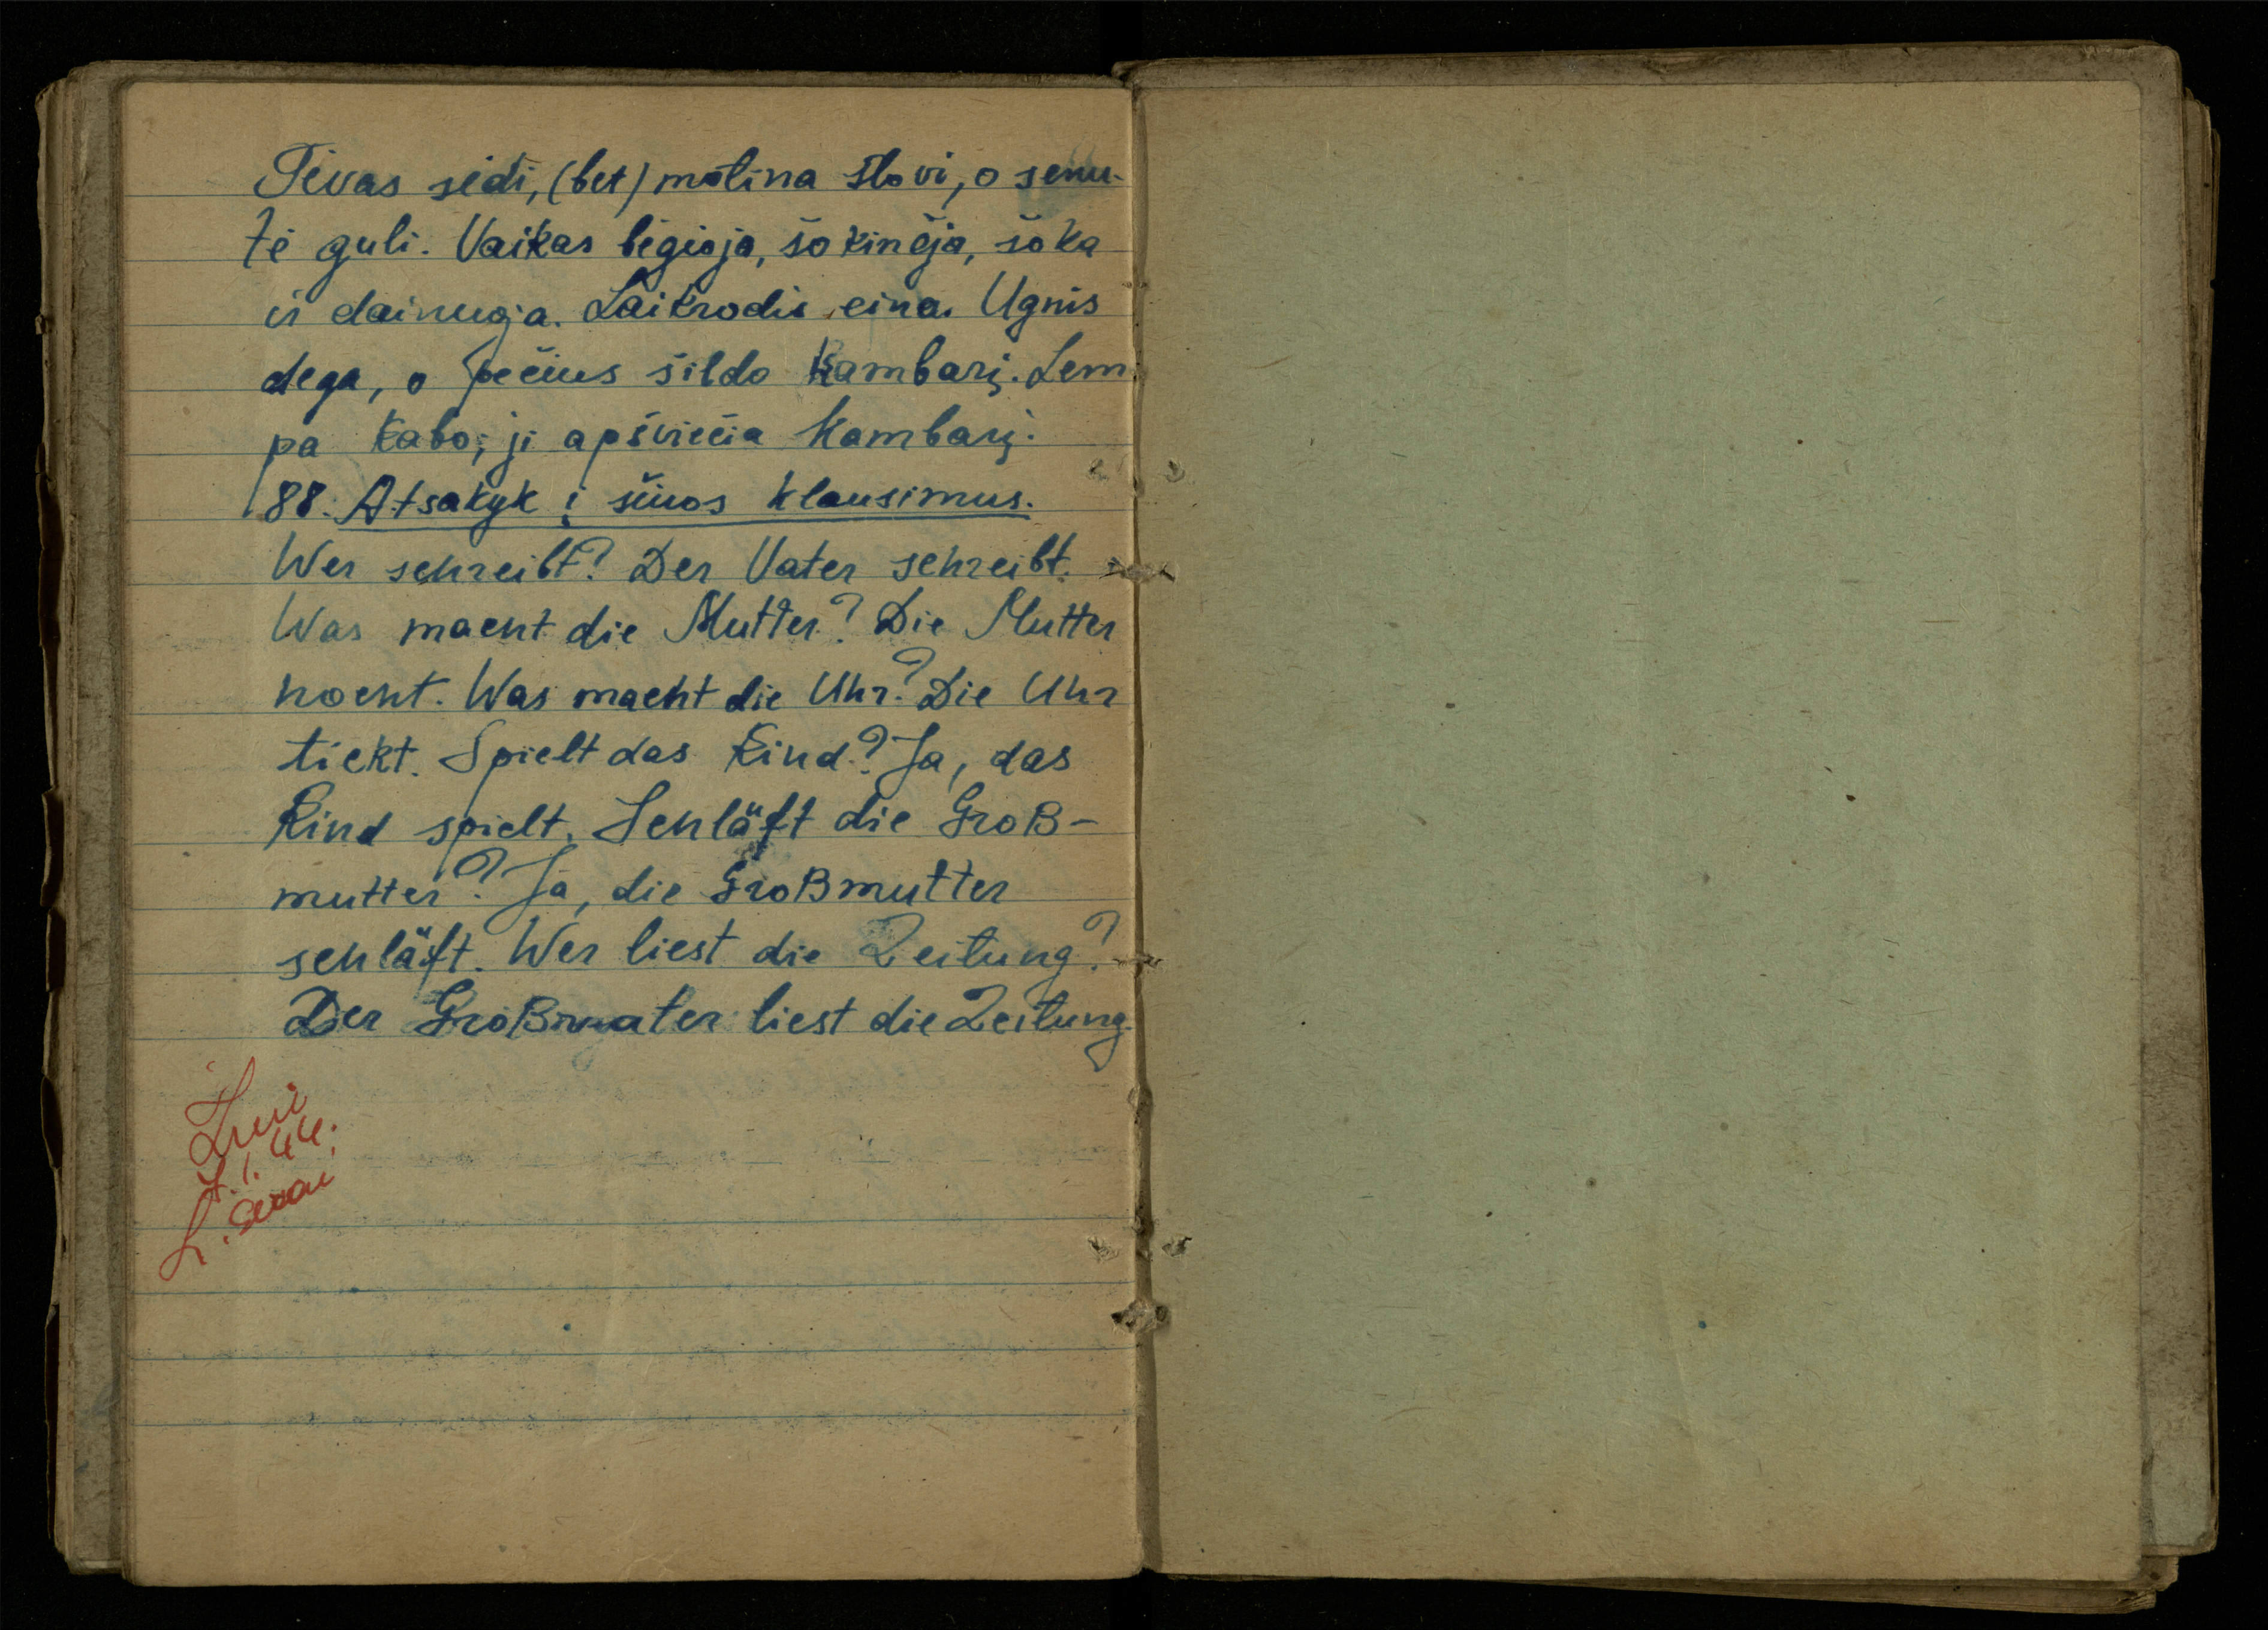 Tėvas sėdi, (bet) motina stovi, o senu-
tė guli. Vaikas bėgioja, šokinėja, šoka
ir dainuoja. Laikrodis eina. Ugnis
dega, o pečius šildo kambarį. Lem-
pa kabo; ji apšviečia kambarį.
88. Atsakyk į šiuos klausimus.
Wer schreibt? Der Vater schreibt.
Was macht die Mutter? Die Mutter
kocht. Was macht die Uhr? Die Uhr
tickt. Spielt das Kind? Ja, das
Kind spielt. Schläft die Groß-
mutter? Ja, die Großmutter
schläft. Wer liest die Zeitung?
Der Großvater liest die Zeitung.